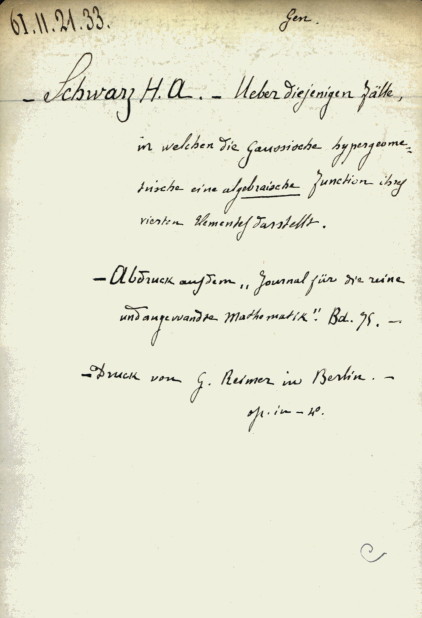 61.11.21.33.
Gen.
- Schwarz H. A. - Ueber diejenigen Fälle,
in welchen die Gaussische hypergeome-
trische eine algebraische Function ihres
vierten Elementes darstellt.
- Abdruck aus dem „Journal für die reine
und angewandte Mathematik". Bd. 75. -
- Druck von G. Reimer in Berlin. -
op. in - 4°.